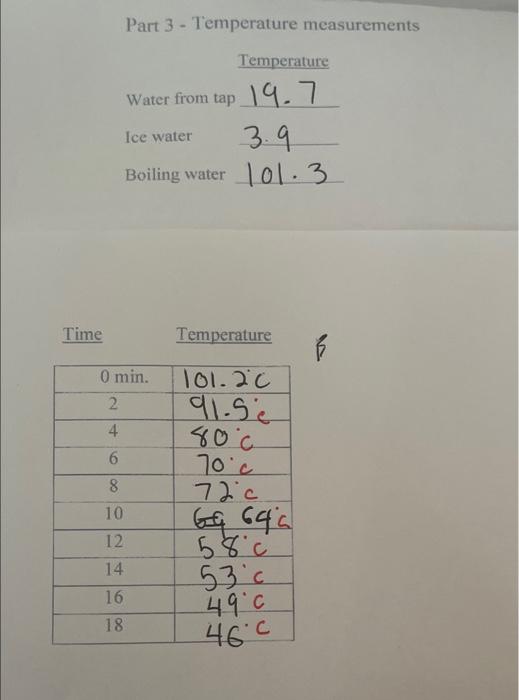 Part 3 - Temperature measurements
Temperature
Water from tap 19.7
Ice water 3.9
Boiling water 101.3
Time Temperature
0 min. 101.2°C
2 91.5°C
4 80°C
6 70°C
8 72°C
10 64°C
12 58°C
14 53°C
16 49°C
18 46°C